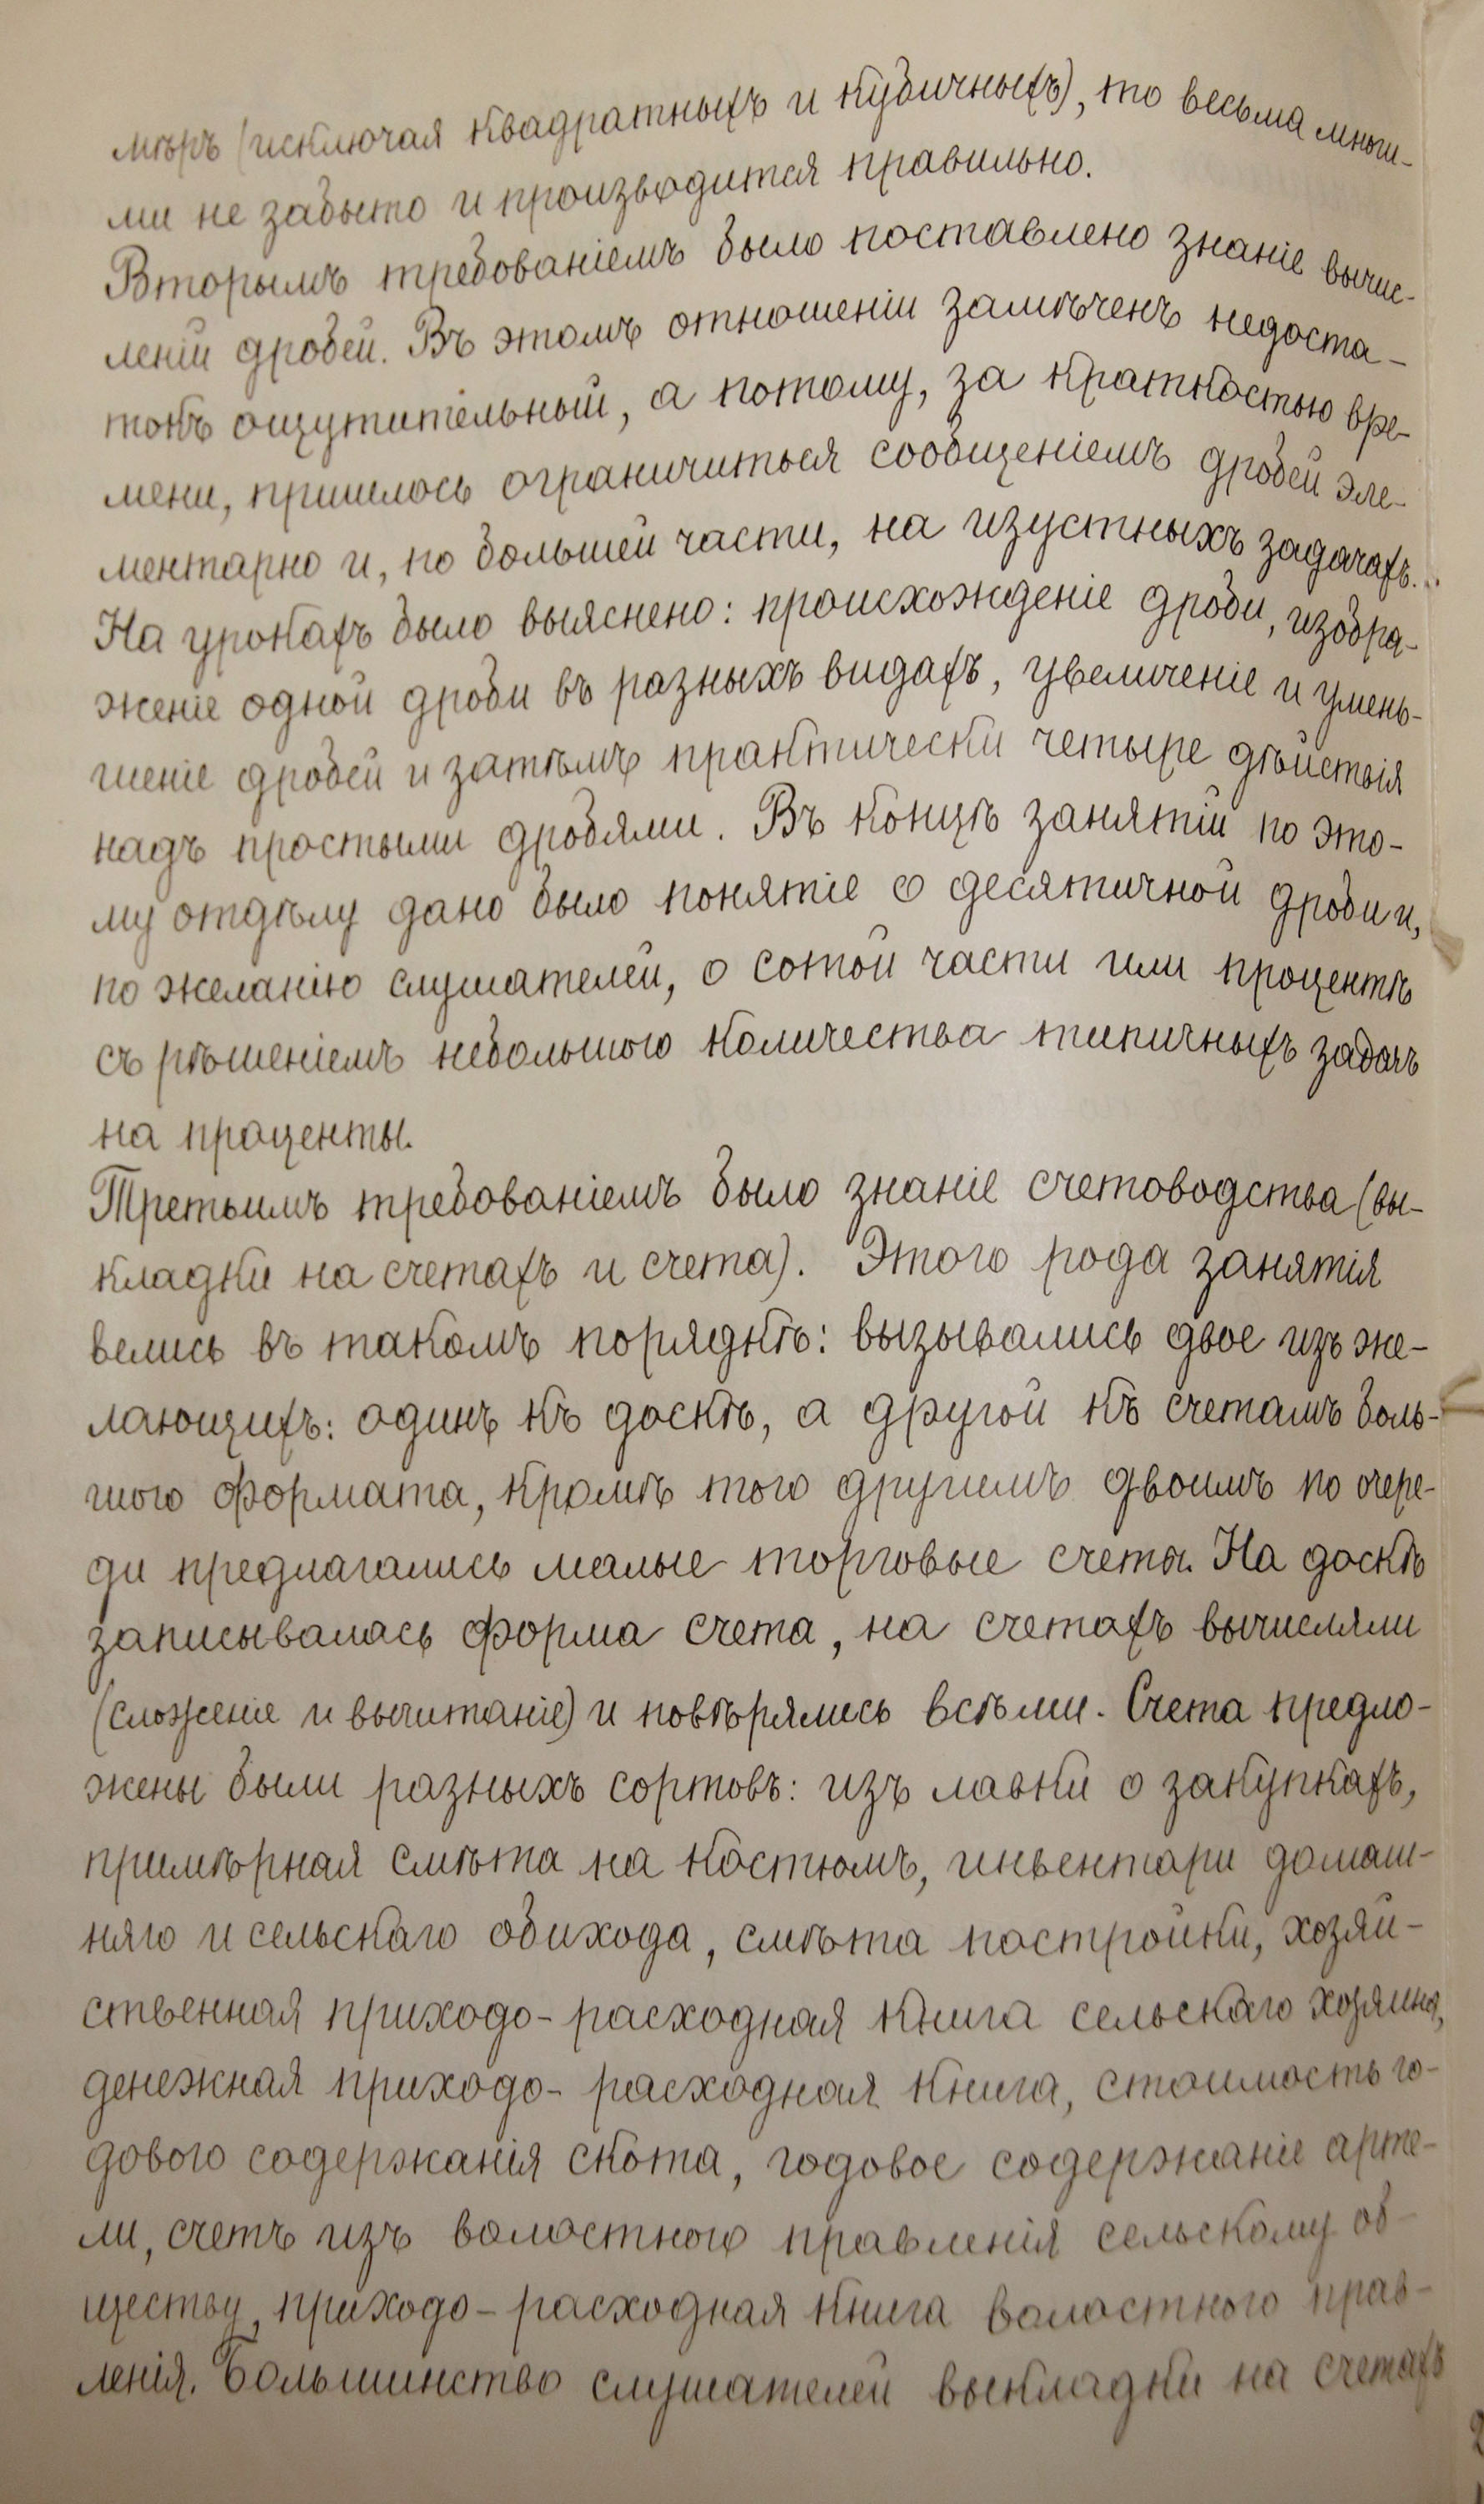 мѣръ (исключая квадратныхъ и кубичныхъ), то весьма многи-
ми не забыто и производится правильно.
Вторымъ требованіемъ было поставлено знаніе вычис-
леній дробей. Въ этомъ отношеніи замѣченъ недоста-
токъ ощутительный, а потому, за краткостью вре-
мени, пришлось ограничиться сообщеніемъ дробей эле-
ментарно и, по большей части, на изустныхъ задачахъ.
На урокахъ было выяснено: происхожденіе дроби, изобра-
женіе одной дроби въ разныхъ видахъ, увеличеніе и умень-
шеніе дробей и затѣмъ практически четыре дѣйствія
надъ простыми дробями. Въ концѣ занятій по это-
му отдѣлу дано было понятіе о десятичной дроби и,
по желанію слушателей, о сотой части или процентѣ
съ рѣшеніемъ небольшого количества типичныхъ задачъ
на проценты.
Третьимъ требованіемъ было знаніе счетоводства (вы-
кладки на счетахъ и счета). Этого рода занятія
велись въ такомъ порядкѣ: вызывались двое изъ же-
лающихъ: одинъ къ доскѣ, а другой къ счетамъ боль-
шого формата, кромѣ того другимъ двоимъ по очере-
ди предлагались малые торговые счеты. На доскѣ
записывалась форма счета, на счетахъ вычисляли
(сложеніе и вычитаніе) и повѣрялись всѣми. Счета предло-
жены были разныхъ сортовъ: изъ лавки о закупкахъ,
примѣрная смѣта на костюмъ, инвентари домаш-
няго и сельскаго обихода, смѣта постройки, хозяй-
ственная приходо-расходная книга сельскаго хозяина,
денежная приходо-расходная книга, стоимость го-
дового содержанія скота, годовое содержаніе арте-
ли, счетъ изъ волостного правленія сельскому об-
ществу, приходо-расходная книга волостного прав-
ленія. Большинство слушателей выкладки на счетахъ